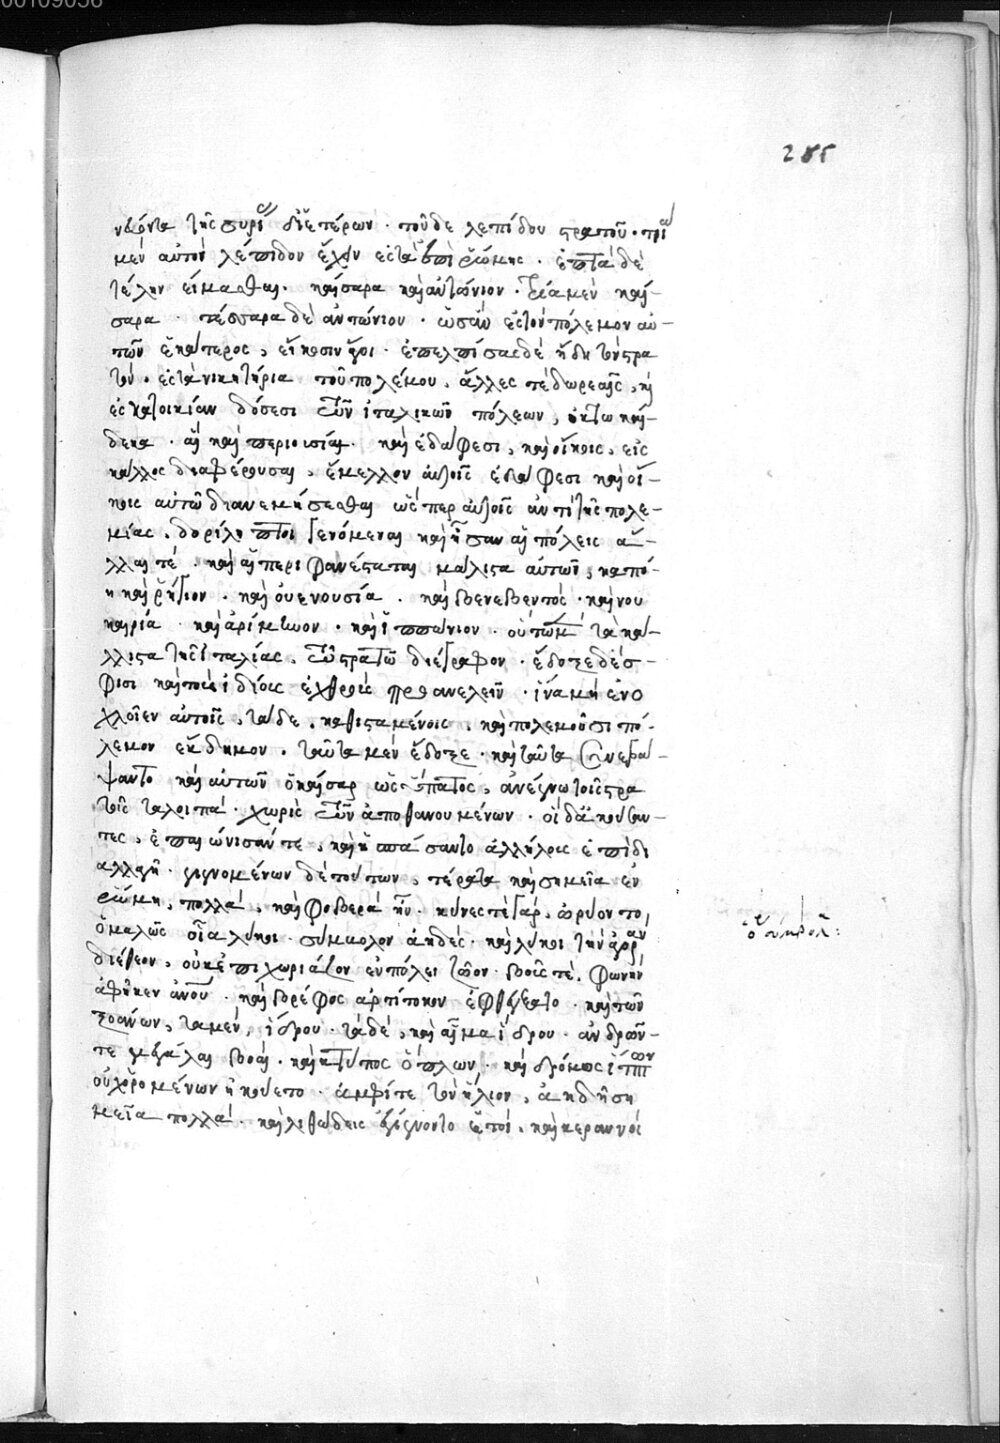 00109056
285
νέοντα τῆς συρί δι' ἑτέρων · τοῦ δὲ λεπίδου στρατοῦ · τρία
μὲν αὐτὸν λέπιδον ἔχειν ἐς τὰ ἐπὶ ῥώμης · ἑπτὰ δὲ
τέλη νείμασθαι · καίσαρα καὶ ἀντώνιον · τρία μὲν καί-
σαρα · τέσσαρα δὲ ἀντώνιον · ὡς ἂν ἐς τὸν πόλεμον αὐ-
τῶν ἑκάτερος, εἴκοσιν ἄγοι · ἐπελπίσαι δὲ ἤδη τὸν στρα
τὸν · ἐς τὰ νικητήρια τοῦ πολέμου, ἄλλες τὲ δωρεαῖς, καὶ
ἐς κατοικίαν δόσεσι τῶν ἰταλικῶν πόλεων, ὀκτω καί-
δεκα · αἳ καὶ περιουσίαι · καὶ ἐδάφεσι, καὶ οἴκοις, εἰς
κάλλος διαφέρουσαι, ἔμελλον αὐτοῖς ἐδάφεσι καὶ οἴ-
κοις αὐτῶ διανεμήσεσθαι ὥσπερ αὐτοῖς ἀντὶ τῆς πολε-
μίας, δορίληπτοι γενόμεναι καὶ ἦσαν αἱ πόλεις ἄ-
λλαι τὲ · καὶ αἱ περιφανέσταται μάλιστα αὐτῶν, καπύ-
η καὶ ῥήγιον · καὶ οὐενουσία · καὶ βενεβεντὸς · καὶ νου
καιρία · καὶ ἀρίμινον · καὶ ἱππώνιον · οὕτω μὲν τὰ κά-
λλιστα τῆς ἰταλίας, τῶ στρατῶ διέγραφον · ἔδοξε δὲ σ-
φισι καὶ τοὺς ἰδίους ἐχθροὺς προανελεῖν · ἵνα μὴ ἐνο
χλοῖεν αὐτοῖς, τάδε, καθισταμένοις, καὶ πολεμοῦσι πό-
λεμον ἔκδημον, ταῦτα μὲν ἔδοξε · καὶ ταῦτα συνεγρά-
ψαντο καὶ αὐτῶν ὁ καίσαρ ὡς ὕπατος, ἀνέγνω τοῖς στρα
τοῖς τὰ λοιπὰ · χωρὶς τῶν ἀποθανουμένων · οἱ δὲ ἀκούσαν-
τες, ἐπαιώνισάν τε, καὶ ἠσπάσαντο ἀλλήλους ἐπὶ δι
αλλαγῆ · γιγνομένων δὲ τούτων, τέρατα καὶ σημεῖα ἐν
ῥώμη, πολλὰ, καὶ φοβερὰ ἦν · κύνες τὲ γὰρ, ὠρύοντο,
ὁμαλῶς οἷα λύκοι · σύμβολον ἀηδές · καὶ λύκοι τὴν ἀγορὰν
διέθεον, οὐκ ἐπιχωριάζον ἐν πόλει ζῶον · βοῦς τὲ, φωνὴν
ἀφῆκεν ἀνου · καὶ βρέφος ἀρτίτοκον ἐφθέγξατο · καὶ τῶν
ξοάνων, τὰ μὲν, ἵδρου · τὰ δὲ, καὶ αἷμα ἵδρου · ἀνδρῶν-
τε μεγάλαι βοαὶ · καὶ κτύπος ὅπλων, καὶ δρόμος ἵππων
οὐχ ὁρομένων ἠκούετο · ἀμφίτε τὸν ἥλιον, ἀηδῆ ση
μεῖα πολλὰ · καὶ λιθώδεις ἐγίγνοντο ὑετοί, καὶ κεραυνοὶ